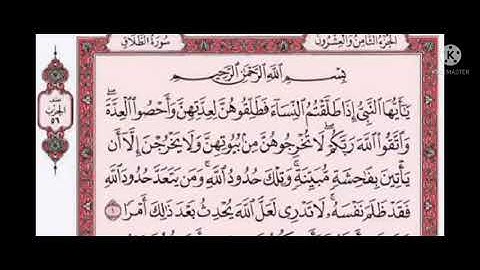 الجزء الثامن والعشرون
سورة الطلاق
الحزب
٥٦
بِسْمِ اللَّهِ الرَّحْمَٰنِ الرَّحِيمِ
يَٰٓأَيُّهَا النَّبِيُّ إِذَا طَلَّقْتُمُ النِّسَآءَ فَطَلِّقُوهُنَّ لِعِدَّتِهِنَّ وَأَحْصُوا الْعِدَّةَ ۖ
وَاتَّقُوا اللَّهَ رَبَّكُمْ ۖ لَا تُخْرِجُوهُنَّ مِنۢ بُيُوتِهِنَّ وَلَا يَخْرُجْنَ إِلَّآ أَن
يَأْتِينَ بِفَٰحِشَةٍ مُّبَيِّنَةٍ ۚ وَتِلْكَ حُدُودُ اللَّهِ ۚ وَمَن يَتَعَدَّ حُدُودَ اللَّهِ
فَقَدْ ظَلَمَ نَفْسَهُۥ ۚ لَا تَدْرِى لَعَلَّ اللَّهَ يُحْدِثُ بَعْدَ ذَٰلِكَ أَمْرًا ١